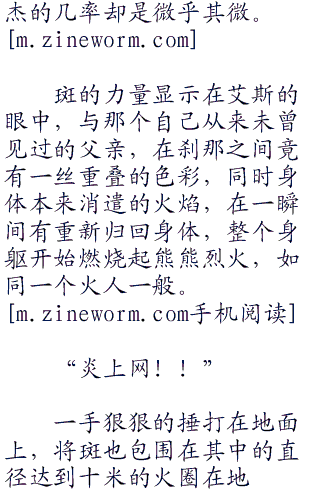 杰的几率却是微乎其微。
[m.zineworm.com]
斑的力量显示在艾斯的
眼中，与那个自己从来未曾
见过的父亲，在刹那之间竟
有一丝重叠的色彩，同时身
体本来消遣的火焰，在一瞬
间有重新归回身体，整个身
躯开始燃烧起熊熊烈火，如
同一个火人一般。
[m.zineworm.com手机阅读]
“炎上网！！”
一手狠狠的捶打在地面
上，将斑也包围在其中的直
径达到十米的火圈在地